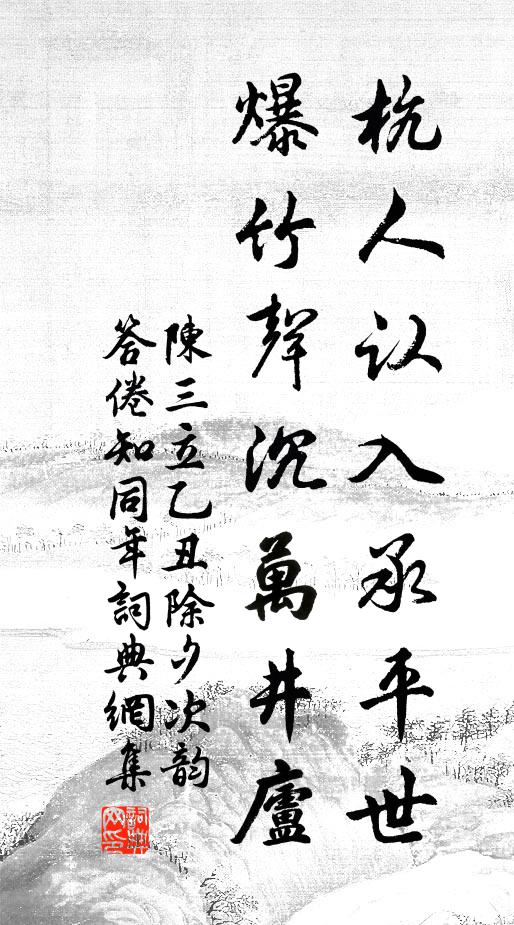 杭人认入承平世
爆竹聲沉萬井廬
陳三立乙丑除夕次韵
答倦知同年詞典網集